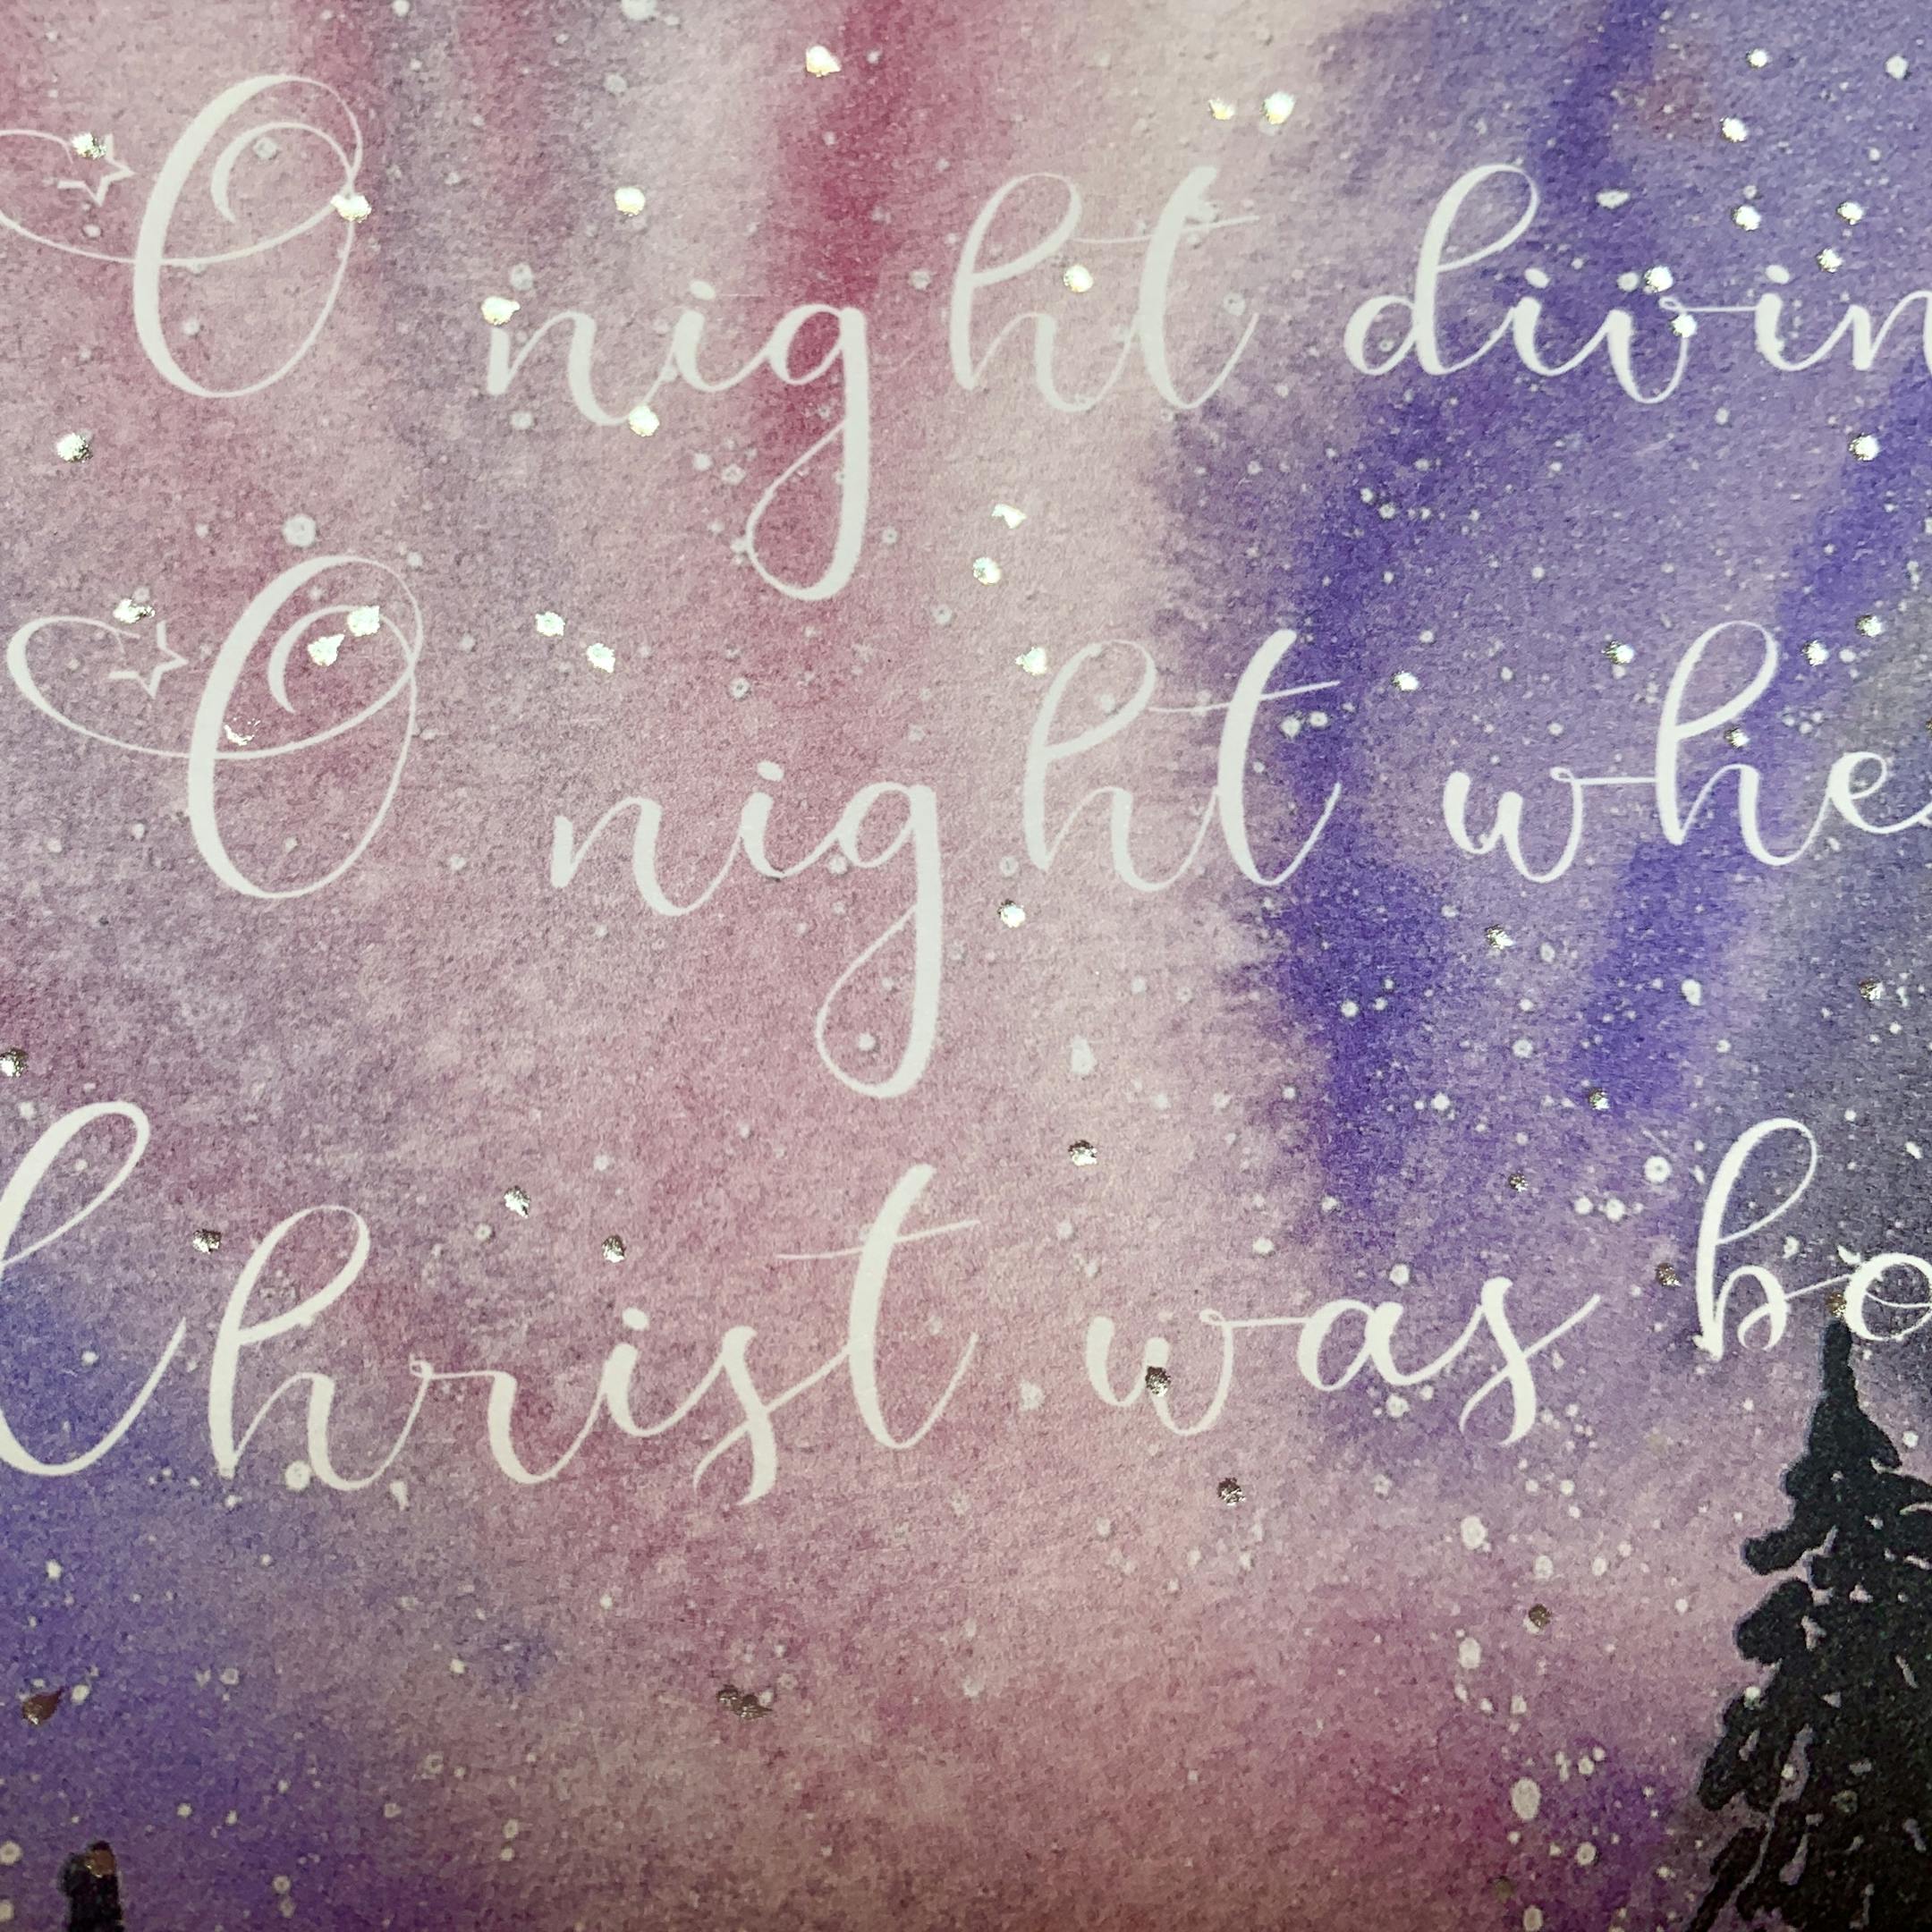 O night divin
O night whe
Christ was bo